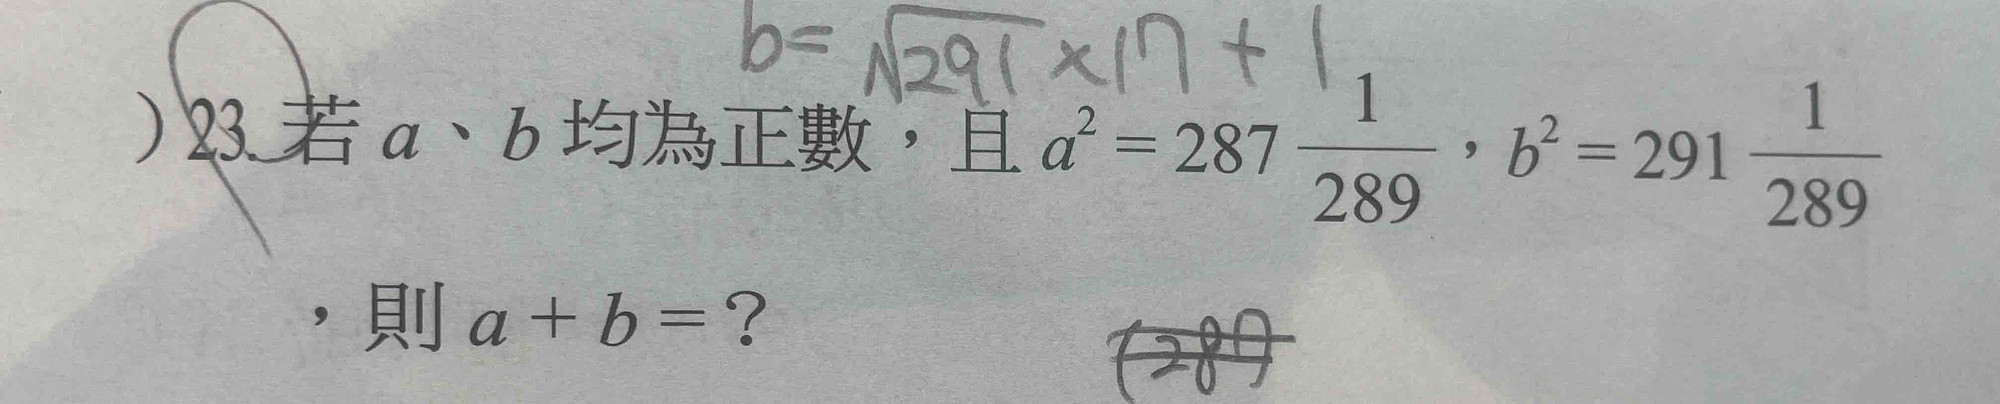 b=√291×17+1
)23.若a、b均為正數,且a²=287 1/289,b²=291 1/289
,則a+b=?
(287